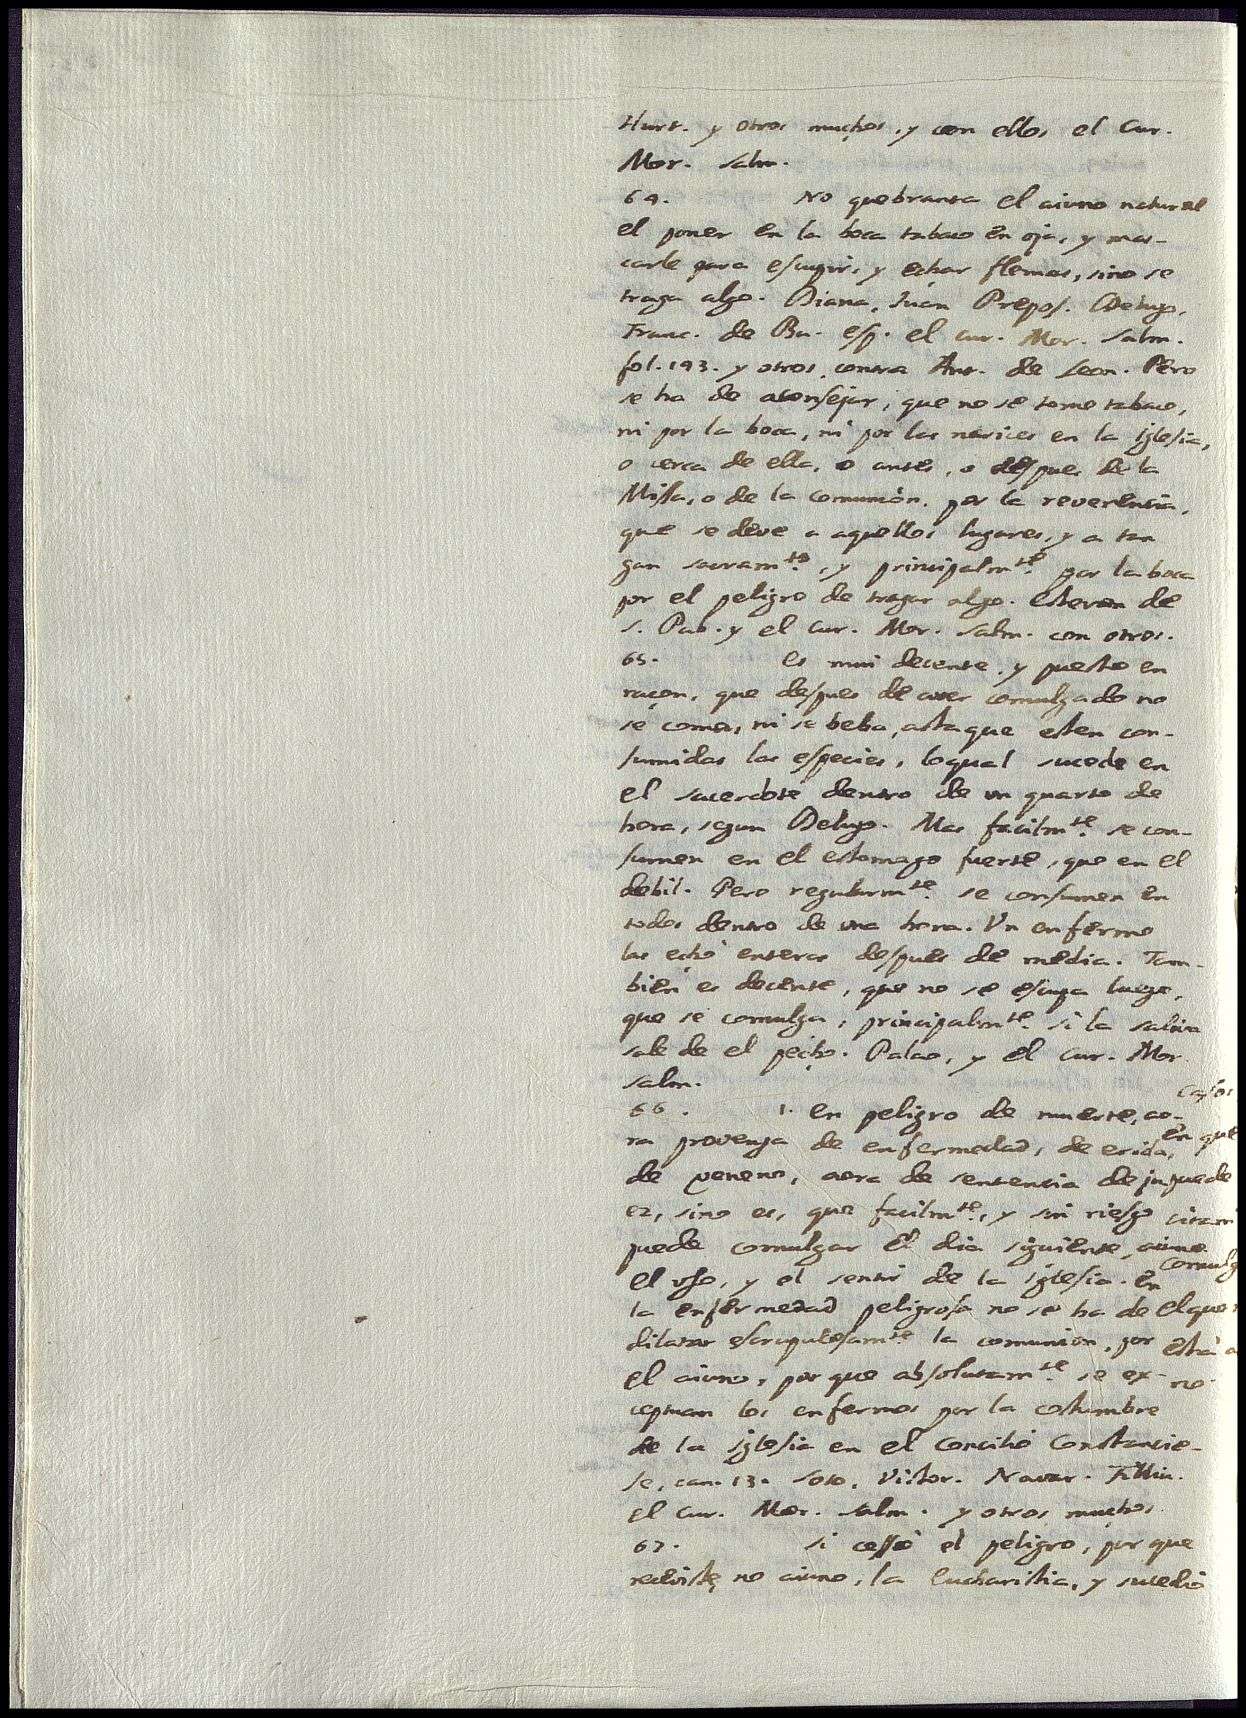 Hurt. y otros muchos, y con ellos el Cur.
Mor. Salm.
64. No quebranta el aiuno natural
el poner en la boca tabaco en oja, y mas-
carle para escupir, y echar flemas, sino se
traga algo. Diana, Juan Prepos. Delugo,
Franc. de Bu. esp. el Cur. Mor. Salm.
fol. 193. y otros, contra Ant. de Leon. Pero
se ha de aconsejar, que no se tome tabaco,
ni por la boca, ni por las narices en la Iglesia,
o cerca de ella, o antes, o despues de la
Missa, o de la comunión, por la reverencia,
que se deve a aquellos lugares, y a tan
gran sacramto., y principalmte. por la boca
por el peligro de tragar algo. Estevan de
S. Pab. y el Cur. Mor. Salm. con otros.
65. Es mui decente, y puesto en
raçon, que despues de aver comulgado no
se coma, ni se beba, asta que esten con-
sumidas las especies, loqual sucede en
el sacerdote dentro de un quarto de
hora, segun Delugo. Mas facilmte. se con-
sumen en el estomago fuerte, que en el
debil. Pero regularmte. se consumen en
todos dentro de una hora. Vn enfermo
las echó enteras despues de media. Tam-
bien es decente, que no se escupa luego,
que se comulga, principalmte. si la saliva
sale de el pecho. Palao, y el Cur. Mor.
Salm.
66. 1. en peligro de muerte, ao-
ra provenga de enfermedad, de erida,
de veneno, aora de sentencia de ju-
ez, sino es, que facilmte., y sin riesgo
puede comulgar el dia siguiente, aiuno
el uso, y el sentir de la Iglesia. en
la enfermedad peligrosa no se ha de
dilatar escrupulosamte. la comunion, por
el aiuno, por que absolutamte. se ex-
ceptuan los enfermos por la costumbre
de la Iglesia en el Concilio Constancie-
se, can. 13. Soto, Victor. Navar. Filliu.
el Cur. Mor. Salm. y otros muchos.
67. si cessó el peligro, por que
reciviste, no aiuno, la Eucharistia, y sucedió
Casos
en que
puede
licitam
comulg
el que
está a
no